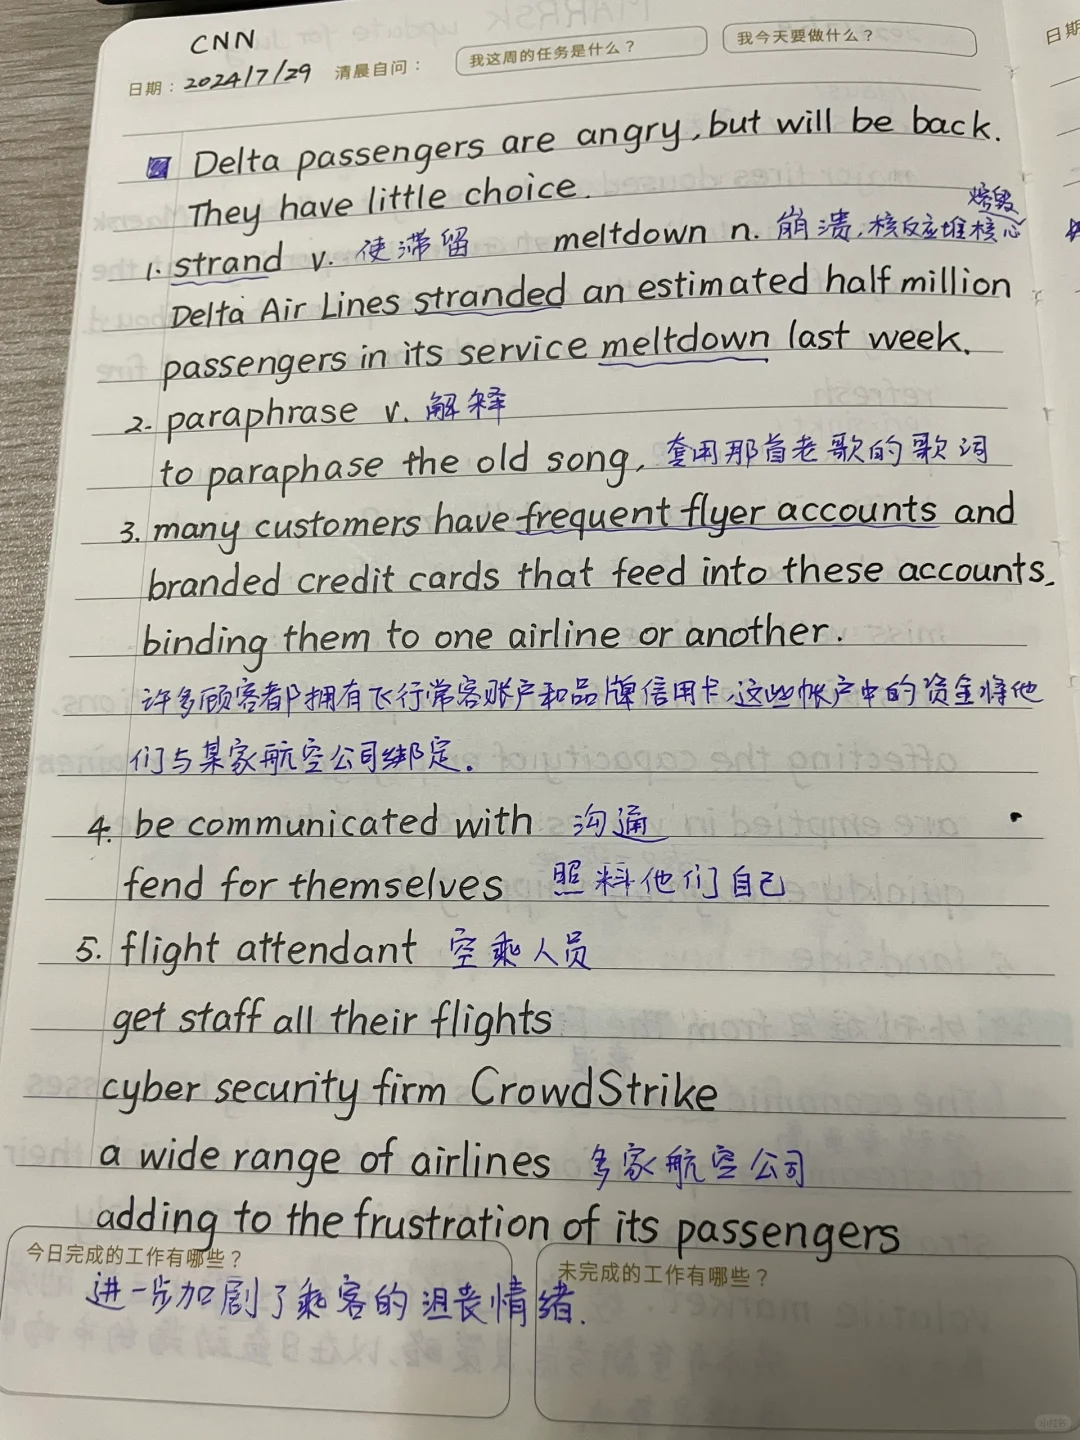 CNN
日期：2024/7/29 清晨自问： 我这周的任务是什么？ 我今天要做什么？
日期
Delta passengers are angry, but will be back.
They have little choice.
熔毁
1. strand v. 使滞留 meltdown n. 崩溃, 核反应堆核心
Delta Air Lines stranded an estimated half million
passengers in its service meltdown last week.
2. paraphrase v. 解释
to paraphase the old song, 套用那首老歌的歌词
3. many customers have frequent flyer accounts and
branded credit cards that feed into these accounts,
binding them to one airline or another.
许多顾客都拥有飞行常客账户和品牌信用卡,这些帐户中的资金将他
们与某家航空公司绑定。
4. be communicated with 沟通
fend for themselves 照料他们自己
5. flight attendant 空乘人员
get staff all their flights
cyber security firm CrowdStrike
a wide range of airlines 多家航空公司
adding to the frustration of its passengers
今日完成的工作有哪些？ 未完成的工作有哪些？
进一步加剧了乘客的沮丧情绪.
小红书